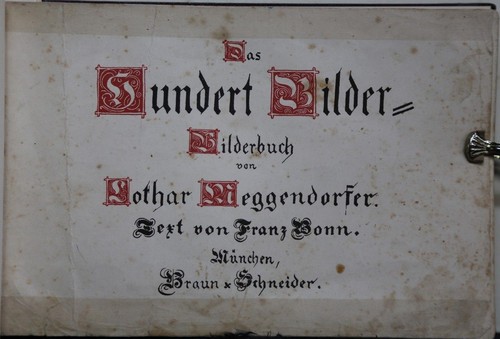 Das
Hundert Bilder=
Bilderbuch
von
Lothar Meggendorfer.
Text von Franz Bonn.
München,
Braun & Schneider.